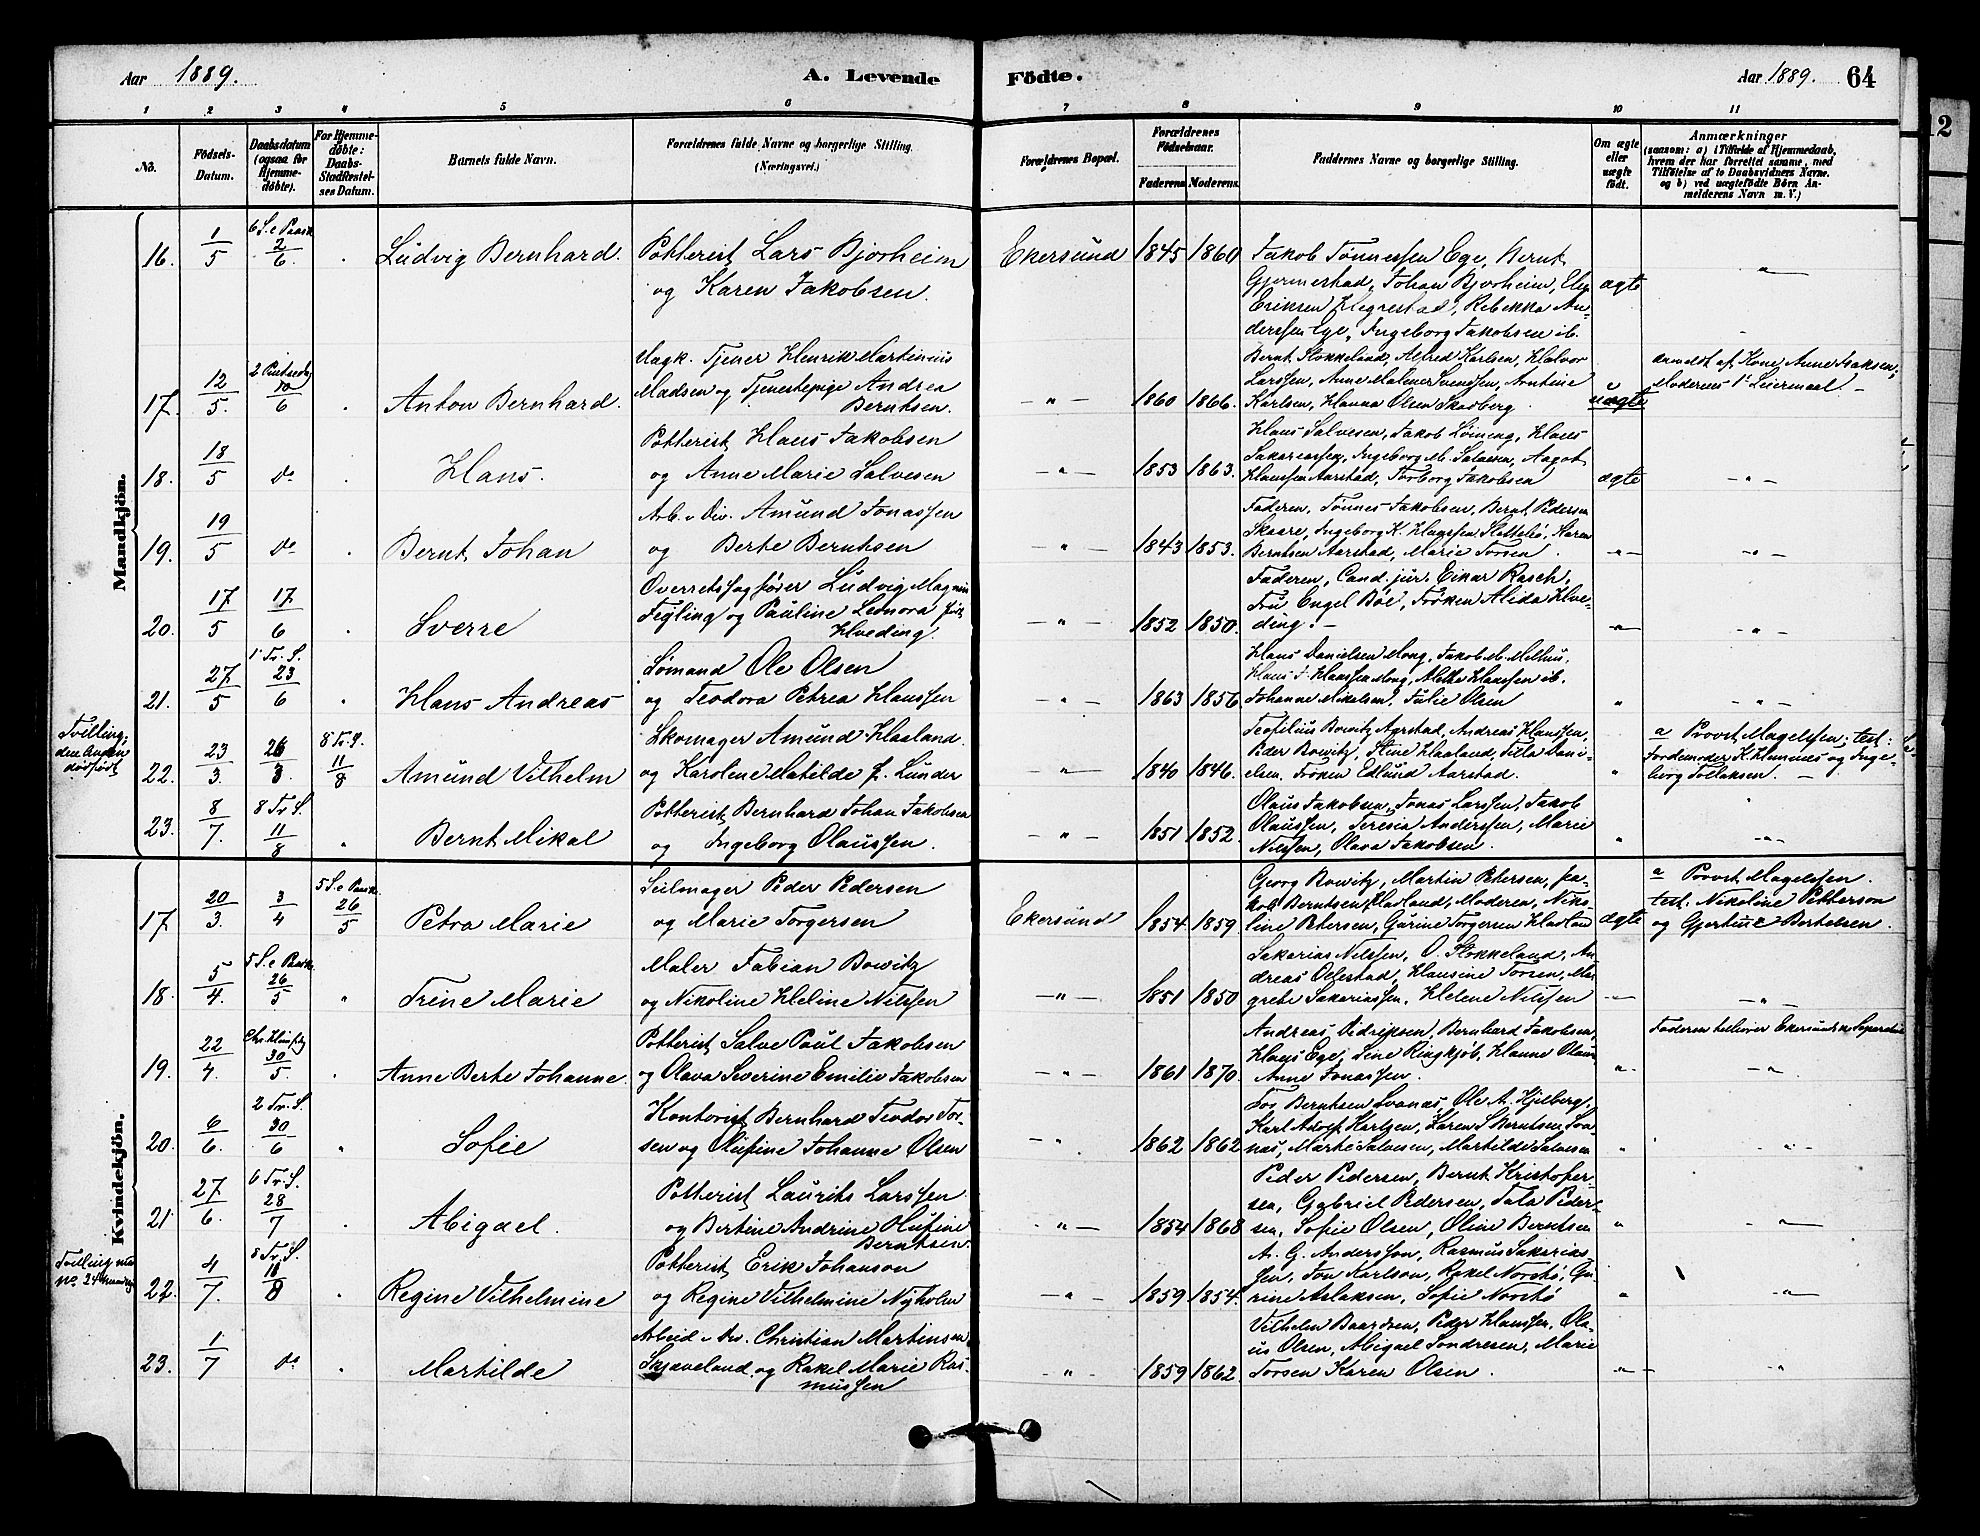 Aar 1889. A. Levende Födte. Aar 1889. 64
1 2 3 4 5 6 7 8 9 10 11
No. Födsels-Datum. Daabsdatum (ogsaa for Hjemmedöbte). For Hjemmedöbte: Daabs-Stadfæstelses Datum. Barnets fulde Navn. Forældrenes fulde Navne og borgerlige Stilling. (Næringsvei.) Forældrenes Bopæl. Forældrenes Födselsaar. Faderens Moderens. Faddernes Navne og borgerlige Stilling. Om ægte eller uægte födt. Anmærkninger (saasom: a) i Tilfælde af Hjemmedaab, hvem der har forrettet samme, med Tilföielse af to Daabsvidners Navne. og b) ved uægtefödte Börn Anmelderens Navn m. V.)
Mandkjön.
16. 1/5 6 S. e Paask 2/6 Ludvig Bernhard. Potterist Lars Bjorheim
og Karen Jakobsen. Ekersund 1845 1860 Jakob Tönnessen Ege, Bernt
Gjermestad, Johan Bjorheim,
Eriksen Hegrestad, Rebekka An-
derssen Ege, Ingeborg Jakobsen ib. ægte
17. 12/5. 2 Pintsedag 10/6 Anton Bernhard. Tjener Henrik Martinius
Madsen og Tjenestepige Andrea
Berntsen. 1860 1866. Bernt Stokkeland, Alfred Karlsen, Halvor
Larssen, Anne Malene Svendsen, Arntine
Karlsen, Hanna Olsen Skadberg. uægte
anmeldt af Kone Anne Isaksen;
Moderens 1ste Leiermaal. —
18. 18/5 do Hans. Potterist Hans Jakobsen
og Anne Marie Salvesen 1853 1863. Hans Salvesen, Jakob Löining, Hans
Sakariassen, Ingeborg M. Salvesen, Aagot
Hanssen Aarstad, Torborg Jakobsen ægte
19. 19/5 do Bernt Johan Arb. u Div. Amund Jonassen
og Berte Berntsen 1843 1853. Faderen, Tönnes Jakobsen, Bernt Pedersen
Skaare, Ingeborg K. Slettebö, Karen
Berntsen Aarstad, Marie Torsen.
20. 17/5 17/6 Sverre Overretssagförer Ludvig Magnus
Feyling og Pauline Leonora föd
Hveding. 1852 1850. Faderen, Cand. jur. Einar Rasch,
Fru Engel Böe, Fröken Alida Hve-
ding. —
21. 27/5 1 Tr. S. 23/6 Hans Andreas Sömand Ole Olsen
og Teodora Petrea Hanssen 1863 1856 Hans Danielsen Mong, Jakob M. Melhus,
Hans J. Hanssen Mong, Hanssen ib.
Johanne Mikelsen, Julie Olsen
Tvilling;
den Anden
dödfödt
22. 23/3. 26/3 8 Tr. S. 11/8 Amund Vilhelm Skomager Amund Haaland
og Karoline Matilde f. Lunder 1840 1846. Teofilius Bowitz Aarstad, Andreas Hanssen,
Peder Bowitz, Stine Haaland, Tilla Dani-
elsen, Fröken Edlund Aarstad. a Provst Magelssen; test:
Jordemoder K. Humnes og Inge-
borg Torlaksen. —
23. 8/7. 8 Tr. S. 11/8 Bernt Mikal Potterist Bernhard Johan Jakobsen
og Ingeborg Olaussen. 1851 1852. Olaus Jakobsen, Jonas Larssen, Jakob
Olaussen, Teresia Anderssen, Marie
Nilssen, Olava Jakobsen.
Kvindekjön.
17. 20/3. 3/4 5 S. e Paask 26/5 Petra Marie Seilmager Peder Pedersen
og Marie Torgersen Ekersund 1854 1859 Georg Bowitz, Martin Petersen, Ja-
kob Berntsen Havland, Moderen, Niko-
line Petersen, Gurine Torgersen Havland ægte a Provst Magelssen.
test. Nikoline Petterson
og Gjertine Bertelsen.
18. 5/4. 5 S. e Paask 26/5 Trine Marie Maler Fabian Bowitz
og Nikoline Heline Nilssen 1851 1850 Sakarias Nilssen, O. Stokkeland, An-
dreas Ollestad, Hansine Torsen, Mar-
grete Sakariassen, Helene Nilssen
19. 22/4. Chr. Himfdg 30/5. Anne Berte Johanne. Potterist Salve Paul Jakobsen
og Olava Severine Emilie Jakobsen 1861 1870. Andreas Didriksen, Bernhard Jakobsen,
Hans Ege, Sine Ringkjöb, Hanne Olsen
Anne Jonassen. Faderen tilhører Ekersunds
20. 6/6. 2 Tr. S. 30/6 Sofie Kontorist Bernhard Teodor Tor-
sen og Olufine Johanne Olsen 1862 1862 Tor Berntsen Svanæs, Ole A. Hjelberg,
Karl Adolf Karlsen, Karen S. Berntsen Sva-
næs, Marte Salvesen, Martilde Salvesen
21. 27/6. 6 Tr. S. 28/7 Abigael. Potterist Laurits Larssen
og Bertine Andrine Olufine
Berntsen. 1854 1868 Peder Pedersen, Bernt Kristofer-
sen, Gabriel Pedersen, Tala Peder-
sen, Sofie Olsen, Oline Berntsen
Tvilling med
no. 24
22. 4/7. 8 Tr. S. /8 Regine Vilhelmine Potterist Erik Johanson
og Regine Vilhelmine Nyholm 1859 1854. A. G. Andersson, Rasmus Sakarias-
sen, Jon Karlson, Rakel Norstö, Gu-
rine Aslaksen, Sofie Norstö
23. 1/7 do Martilde Arbeid. u Div. Christian Martinsen
Skjæveland og Rakel Marie Ras-
mussen 1859 1862 Vilhelm Baardsen, Peder Hanssen, Ola-
us Olsen, Abigael Sondresen, Marie
Torsen Karen Olsen.
12